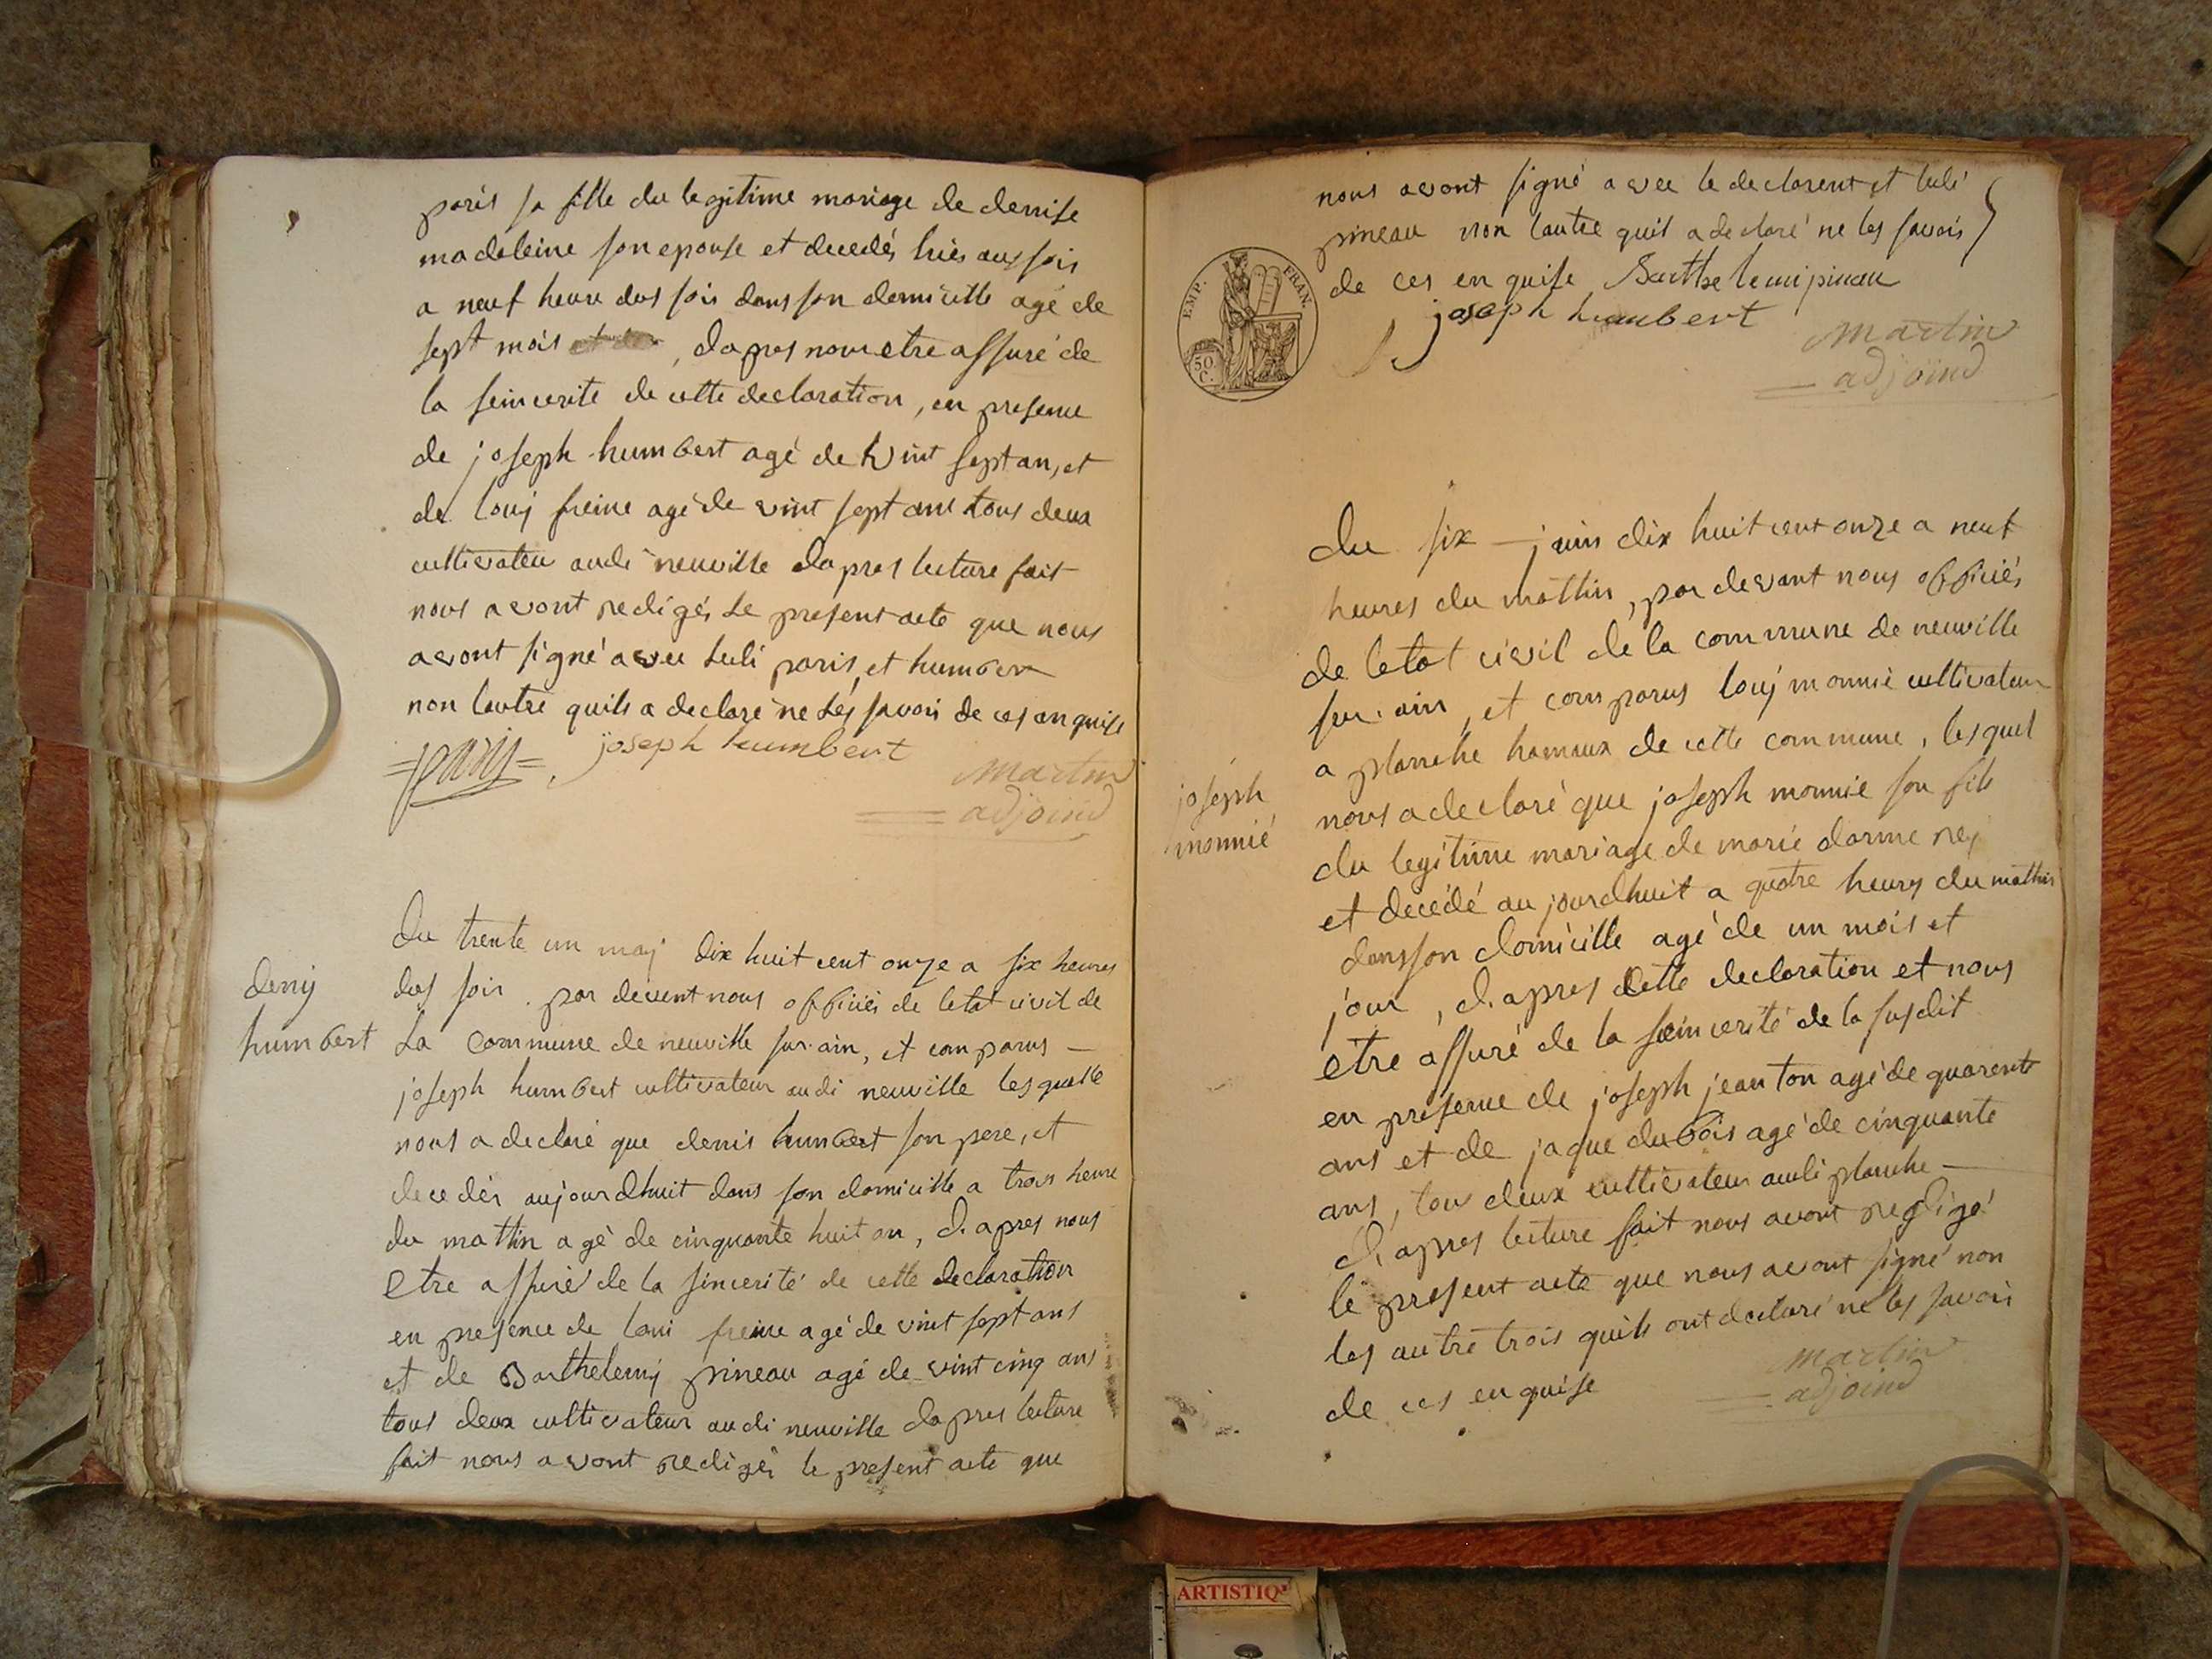 paris sa fille du legitime mariage de denise
madeleine son epouse et decedés hiès aus sois
a neuf heure dus sois dans son domicille agé de
sept mois et, dapres nous etre assuré de
la seincerite de cette declaration, en presence
de joseph humbert agé de vint sept ans, et
de louj freine agé de vint sept ans tous deux
cultivateu audi neuville dapres lecture fait
nous avont redigés le present acte que nous
avont signé avec luli paris, et humber
non lautre quils a declaré ne les savoir de ces an quise
paris joseph humbert
martin
adjoind
denij
humbert
du trente un maj dix huit cent onze a six heures
dus soir. par devent nous officiés de letat civil de
la commune de neuville sur ain, et comparus
joseph humbert cultivateur audi neuville lesquelle
nous a declaré que denis humbert son pere, et
decedés aujourdhuit dans son domicille a trois heure
du mattin agé de cinquante huit an, d. apres nous
etre assuré de la sincerité de cette declaration
en presence de loui freine agé de vint sept ans
et de Barthelemj pineau agé de vint cinq ans
tous deux cultivateur audi neuville dapres lecture
fait nous avont redigés le present acte que
nous avont signé avec le declarent et luli
pineau non lautre quil a declaré ne les savois
de ces en quise Barthelemi pineau
joseph humbert
martin
adjoind
EMP. FRAN.
50 C.
joseph
monnié
du six juin dix huit cent onze a neuf
heures du mattin, par devant nous officiés
de letat civil de la commune de neuville
sur. ain, et comparus louj monnié cultivateur
a planche hamaux de cette commune, lesquel
nous a declaré que joseph monnié son fils
du legitime mariage de marie darme
et decédé aujourdhuit a quatre heures du mattin
dans son domicille agé de un mois et
jour, d. apres cette declaration et nous
etre assuré de la seincerité de la susdit
en presence de joseph jeanton agé de quarente
ans et de jaque dubois agé de cinquante
ans, tous deux cultivateur audi planche
d. apres lecture fait nous avont regligé
le present acte que nous avont signé non
les autre trois quils ont declaré ne les savoir
de ces en quise
martin
adjoind
ARTISTIQ